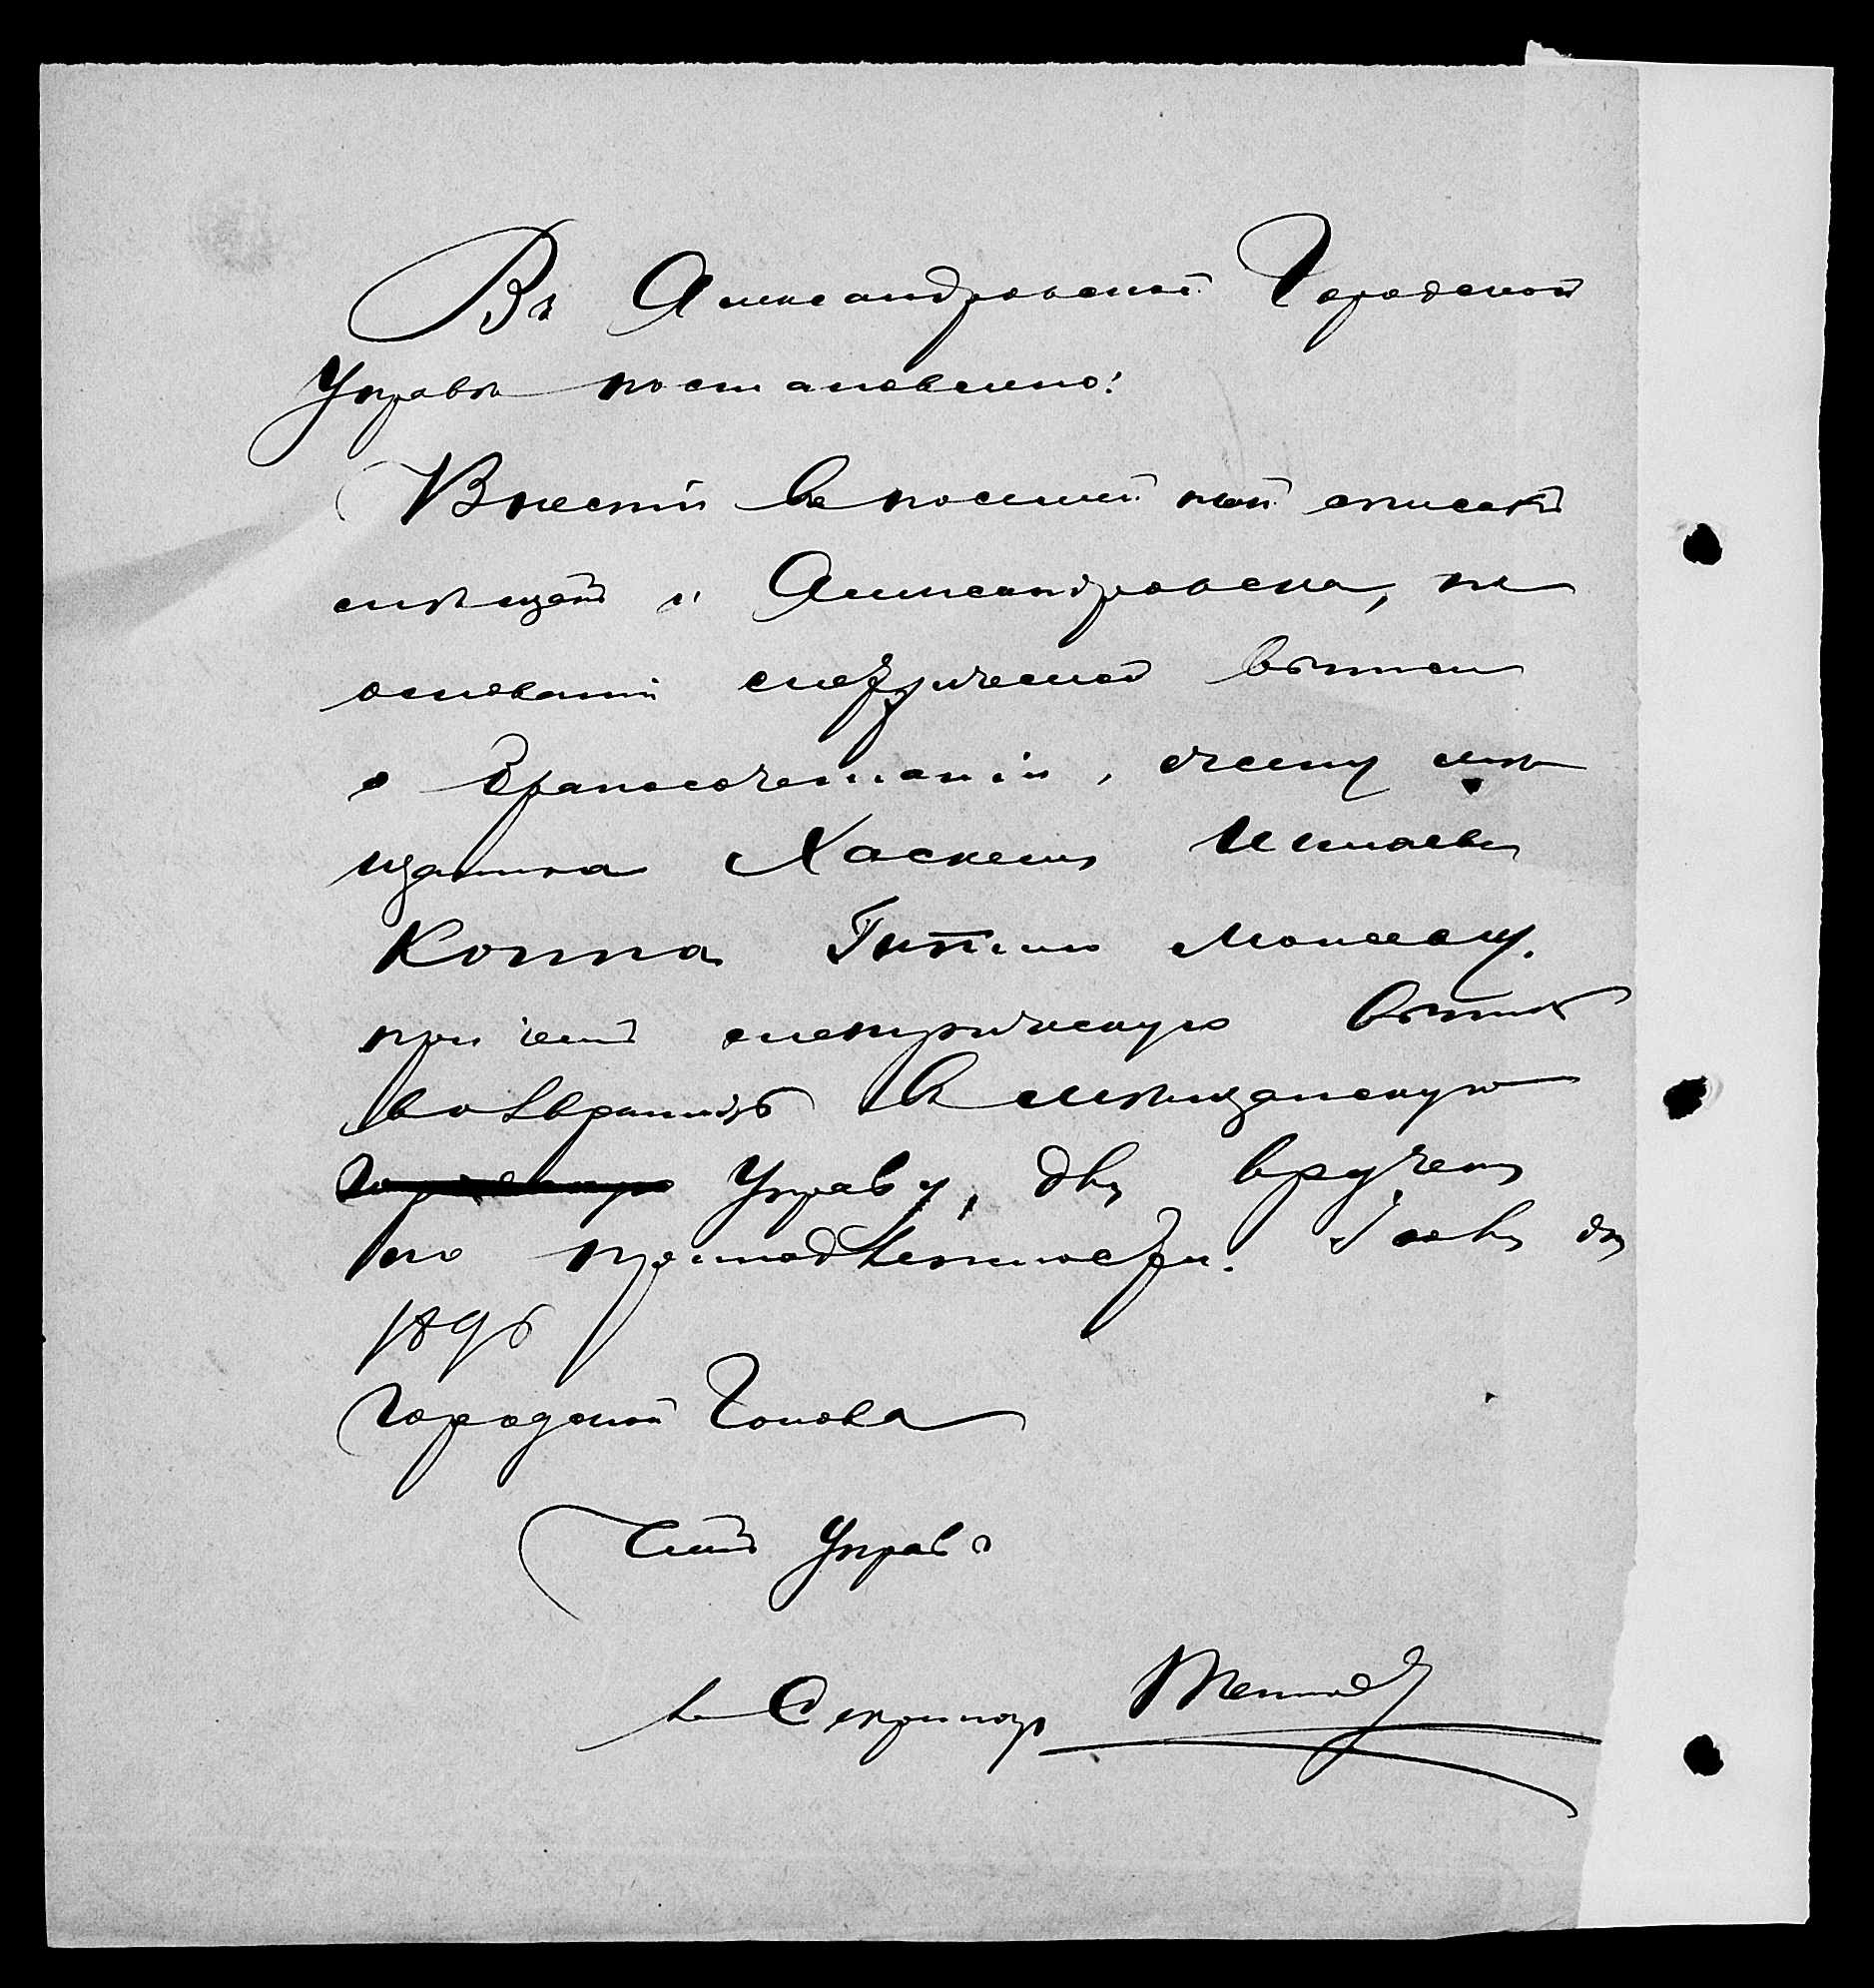 Въ Александровской Городской
Управѣ постановлено:
Внести въ посемейный списокъ
мѣщанъ г. Александровска, на
основаніи метрической выписи
о бракосочетаніи, жену мѣ
щанина Хаскеля
Коппа Гитлю Мовшеву.
при чемъ метрическую выпись
возвратить въ мѣщанскую
Управу, для вручен
по принадлежности. дня
189
Городской Голова
Члены Управы
Секретарь